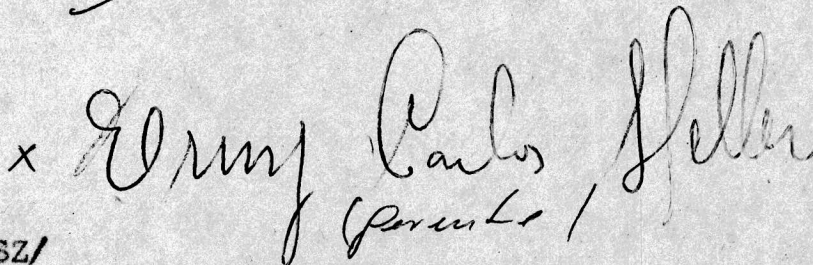 x Erny Carlos Heller
(gerente)
SZ/